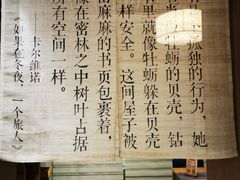 孤独的行为，她
牡蛎的贝壳，钻
里就像牡蛎躲在贝壳
样安全。这间屋子被
密麻麻的书页包裹着，
像在密林之中树叶占据
所有空间一样。
——卡尔维诺
《如果在冬夜，一个旅人》